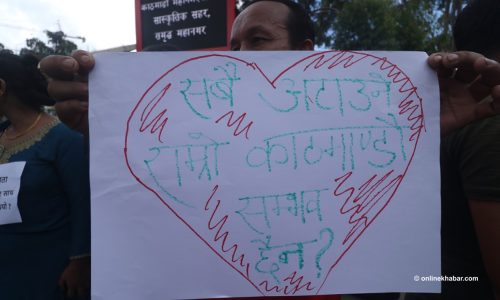 काठमाडौं महानगर
सांस्कृतिक सहर,
समृद्ध महानगर
सबै अटाउने
राम्रो काठमाण्डौ
सम्भव
छैन?
© onlinekhabar.com